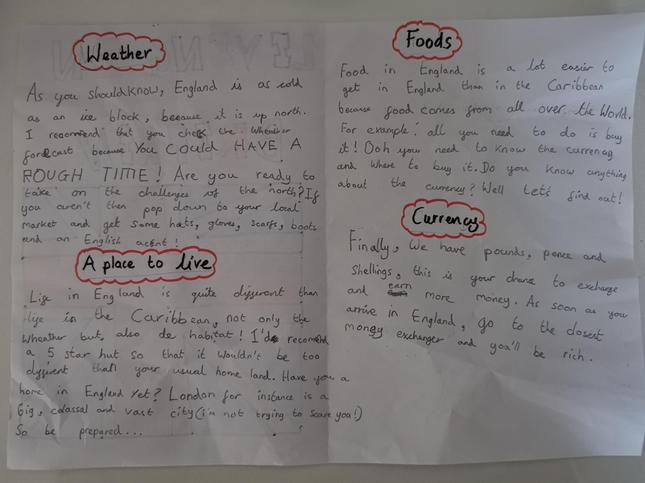 Weather
As you should know, England is as cold
as an ice block, because it is up north.
I recomend that you check the Wheather
forecast because YOU COULD HAVE A
ROUGH TIME! Are you ready to
take on the challenges of the north? If
you aren't then pop down to your local
market and get some hats, gloves, scarfs, boots
and an English acent!
A place to live
Life in England is quite different than
life in the Caribbean, not only the
wheather but, also de habitat! I'd recomend
a 5 star hut so that it wouldn't be too
different that your usual home land. Have you a
home in England yet? London for instance is a
big, colossal and vast city (i'm not trying to scare you!)
So be prepared...
Foods
Food in England is a lot easier to
get in England than in the Caribbean
because food comes from all over the World.
For example: all you need to do is buy
it! Ooh you need to know the currency
and where to buy it. Do you know anything
about the currency? Well let's find out!
Currency
Finally, We have pounds, pence and
shellings, this is your chance to exchange
and earn more money. As soon as you
arrive in England, go to the closest
money exchanger and you'll be rich.